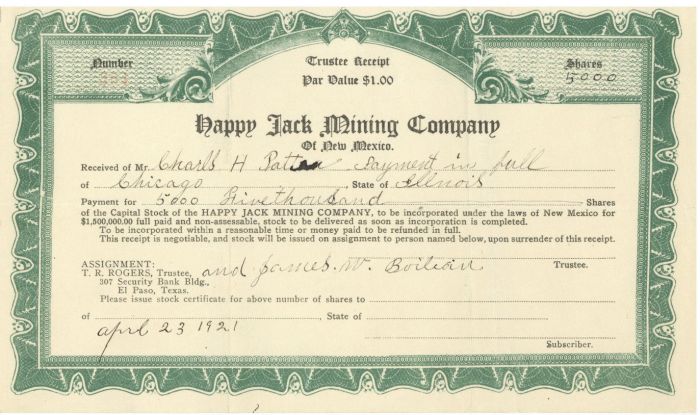 Number
Trustee Receipt
Par Value $1.00
Shares
5000
Happy Jack Mining Company
Of New Mexico.
Received of Mr. Charls H Patten Payment in full
of Chicago, State of Illinois
Payment for 5000 Fivethousand Shares
of the Capital Stock of the HAPPY JACK MINING COMPANY, to be incorporated under the laws of New Mexico for
$1,500,000.00 full paid and non-assessable, stock to be delivered as soon as incorporation is completed.
To be incorporated within a reasonable time or money paid to be refunded in full.
This receipt is negotiable, and stock will be issued on assignment to person named below, upon surrender of this receipt.
ASSIGNMENT:
T. R. ROGERS, Trustee, and James. W. Trustee.
307 Security Bank Bldg.,
El Paso, Texas.
Please issue stock certificate for above number of shares to
of , State of
april 23 1921
Subscriber.